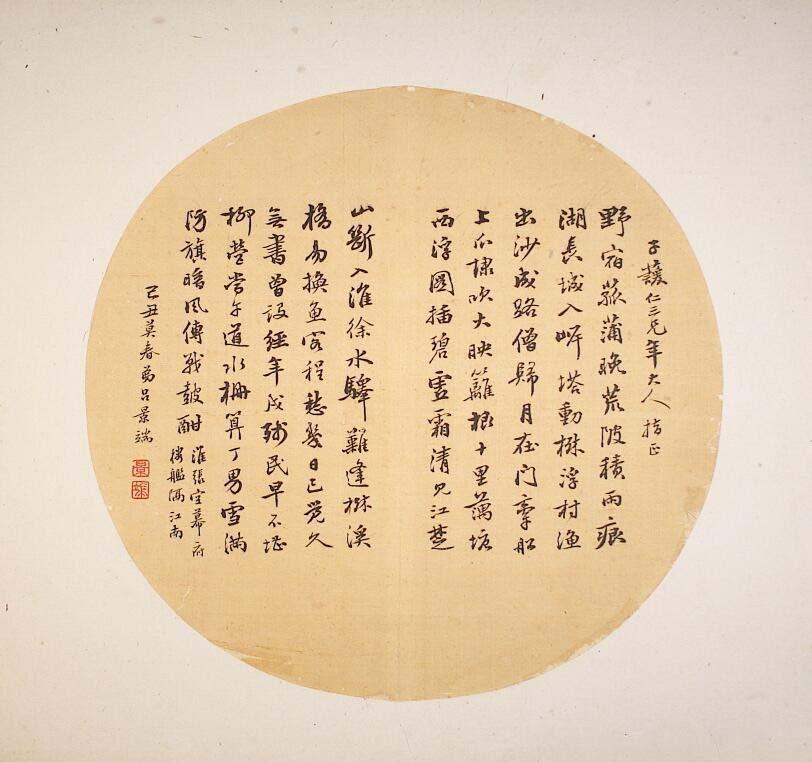 子護仁三兄年大人指正
野宿菰蒲晚荒陂積雨痕
湖長城入岸塔動樹浮村漁
出沙成路僧歸月在門牽船
上瓜埭吠犬映籬根十里藕塘
西浮圖插碧虛霜清見江楚
山斷入淮徐水驛難逢樹溪
橋易換魚客程愁髮日已覺久
無書曾設經年戍殘民早不堪
柳營當午道水柵算丁男雪滿
防旗暗風傳戰鼓酣淮張空幕府
樓艦滿江南
己丑莫春弟呂景端
景端